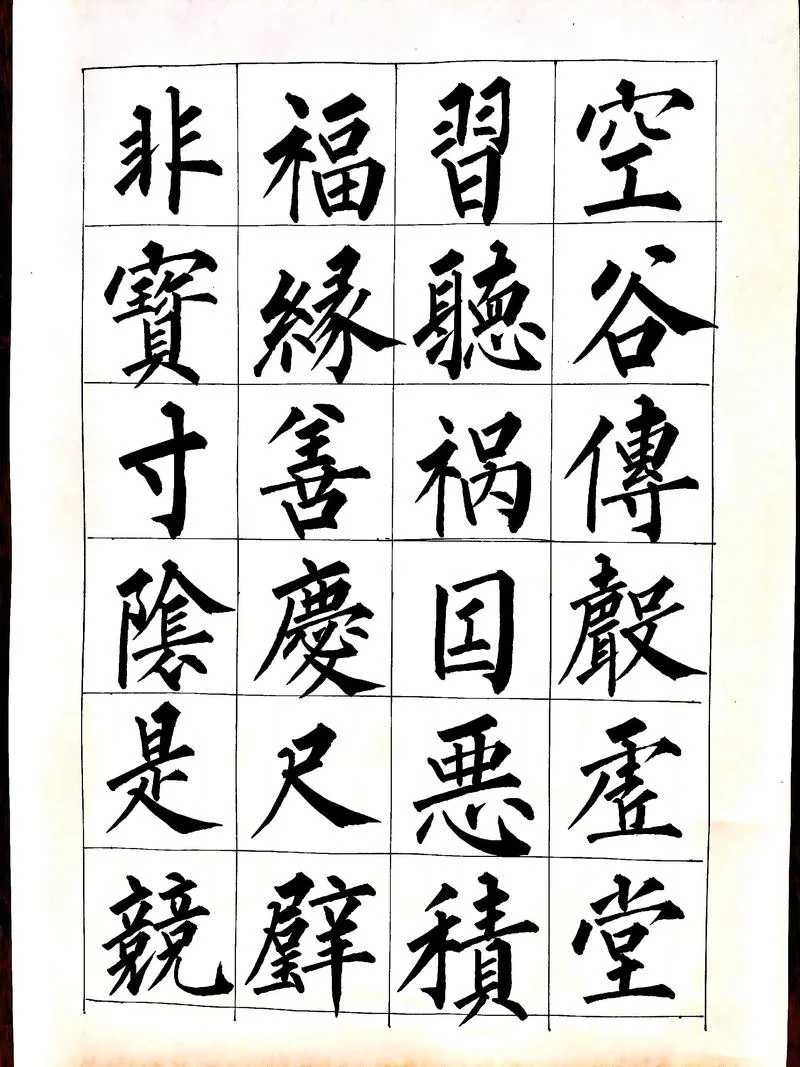 空谷傳聲虛堂
習聽祸囙悪積
福緣善慶尺璧
非寶寸陰是競